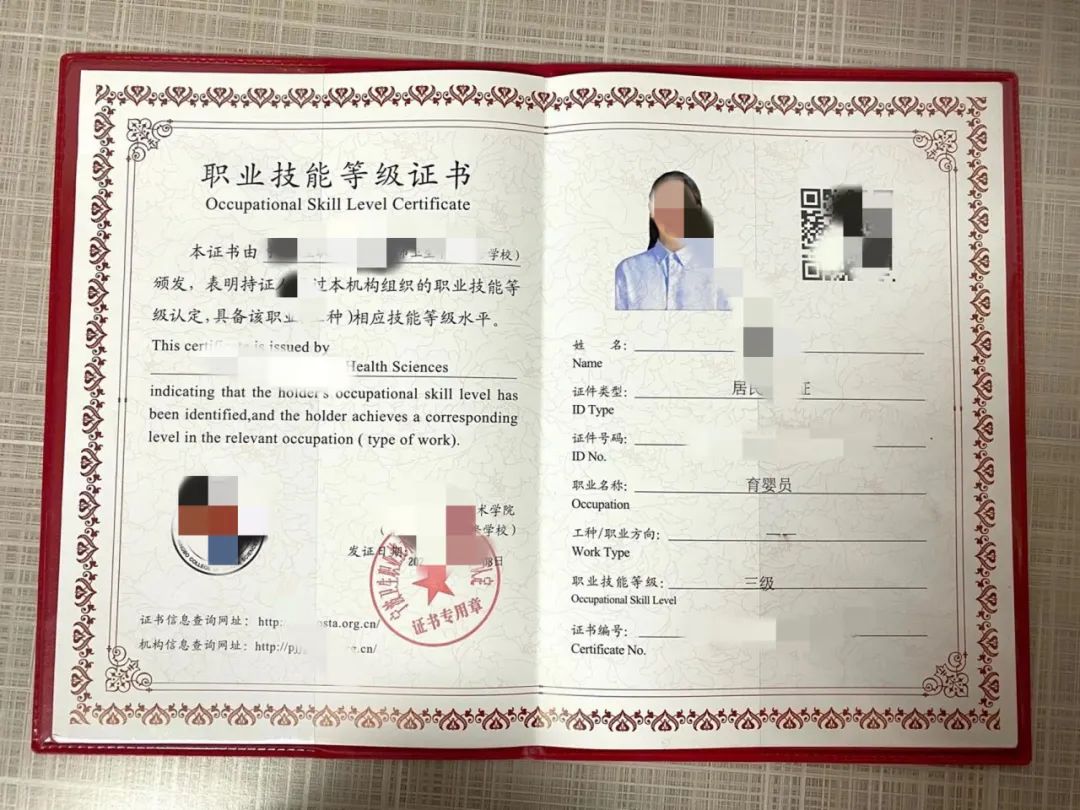 职业技能等级证书
Occupational Skill Level Certificate
本证书由 学校)
颁发，表明持证 过本机构组织的职业技能等
级认定，具备该职业 种)相应技能等级水平。
This is issued by
Health Sciences
indicating that the holder's occupational skill level has
been identified,and the holder achieves a corresponding
level in the relevant occupation ( type of work).
术学院
学校)
发证日期：
08日
证书专用章
证书信息查询网址： osta.org.cn/
机构信息查询网址：
姓 名：
Name
证件类型： 居民 证
ID Type
证件号码：
ID No.
职业名称： 育婴员
Occupation
工种/职业方向： —
Work Type
职业技能等级： 三级
Occupational Skill Level
证书编号：
Certificate No.